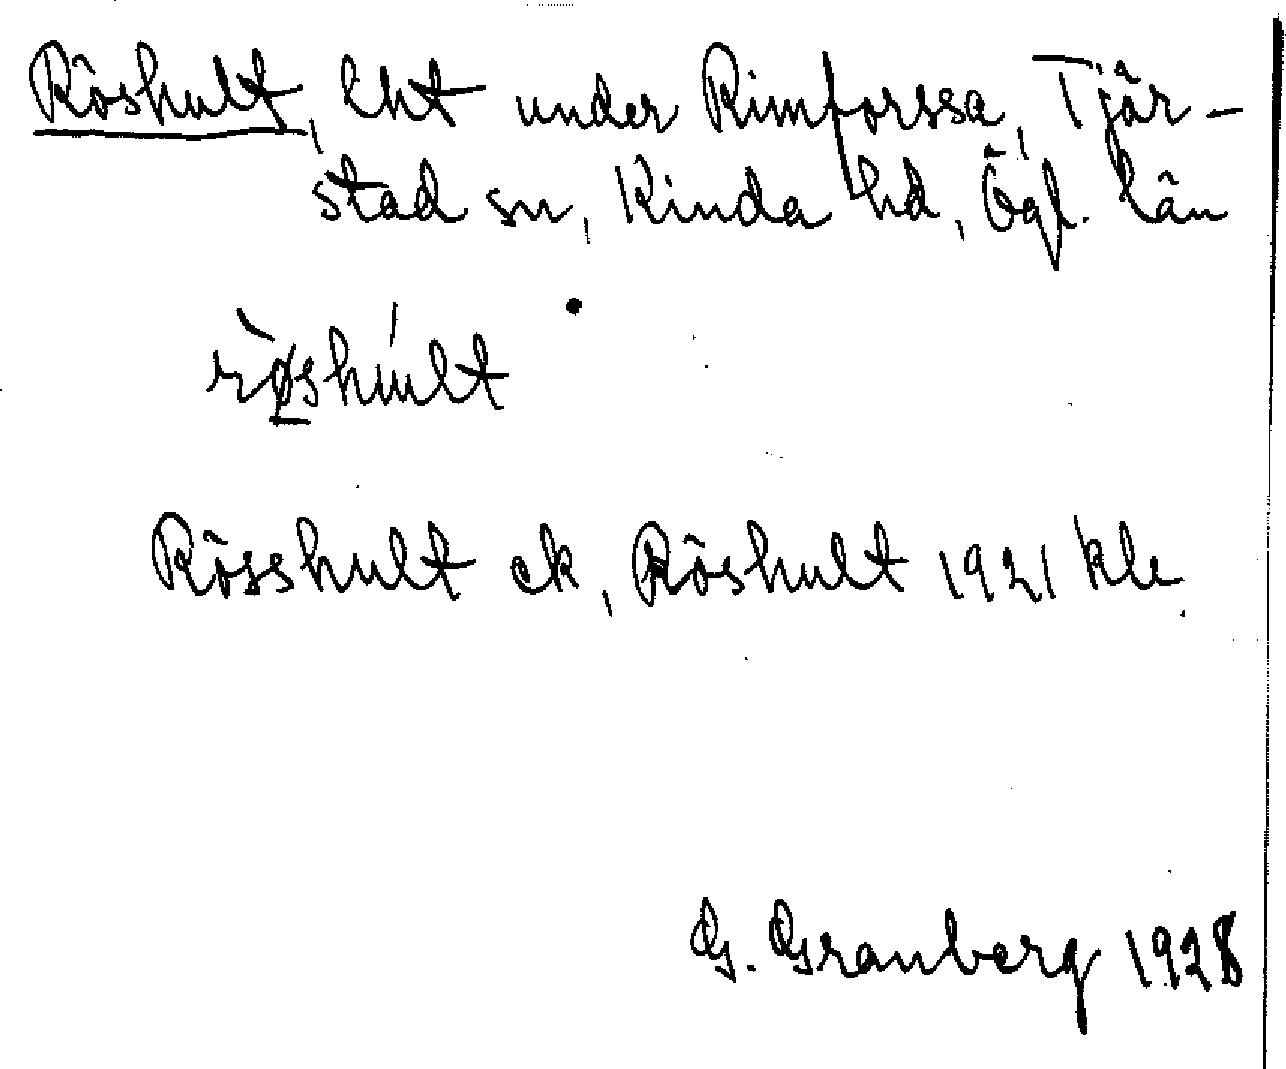 Röshult, lht under Rimforssa, Tjär-
stad sn, Kinda hd, Ögl. län
rø̀shúlt
Rösshult ek, Röshult 1921 kle
G. Granberg 1928